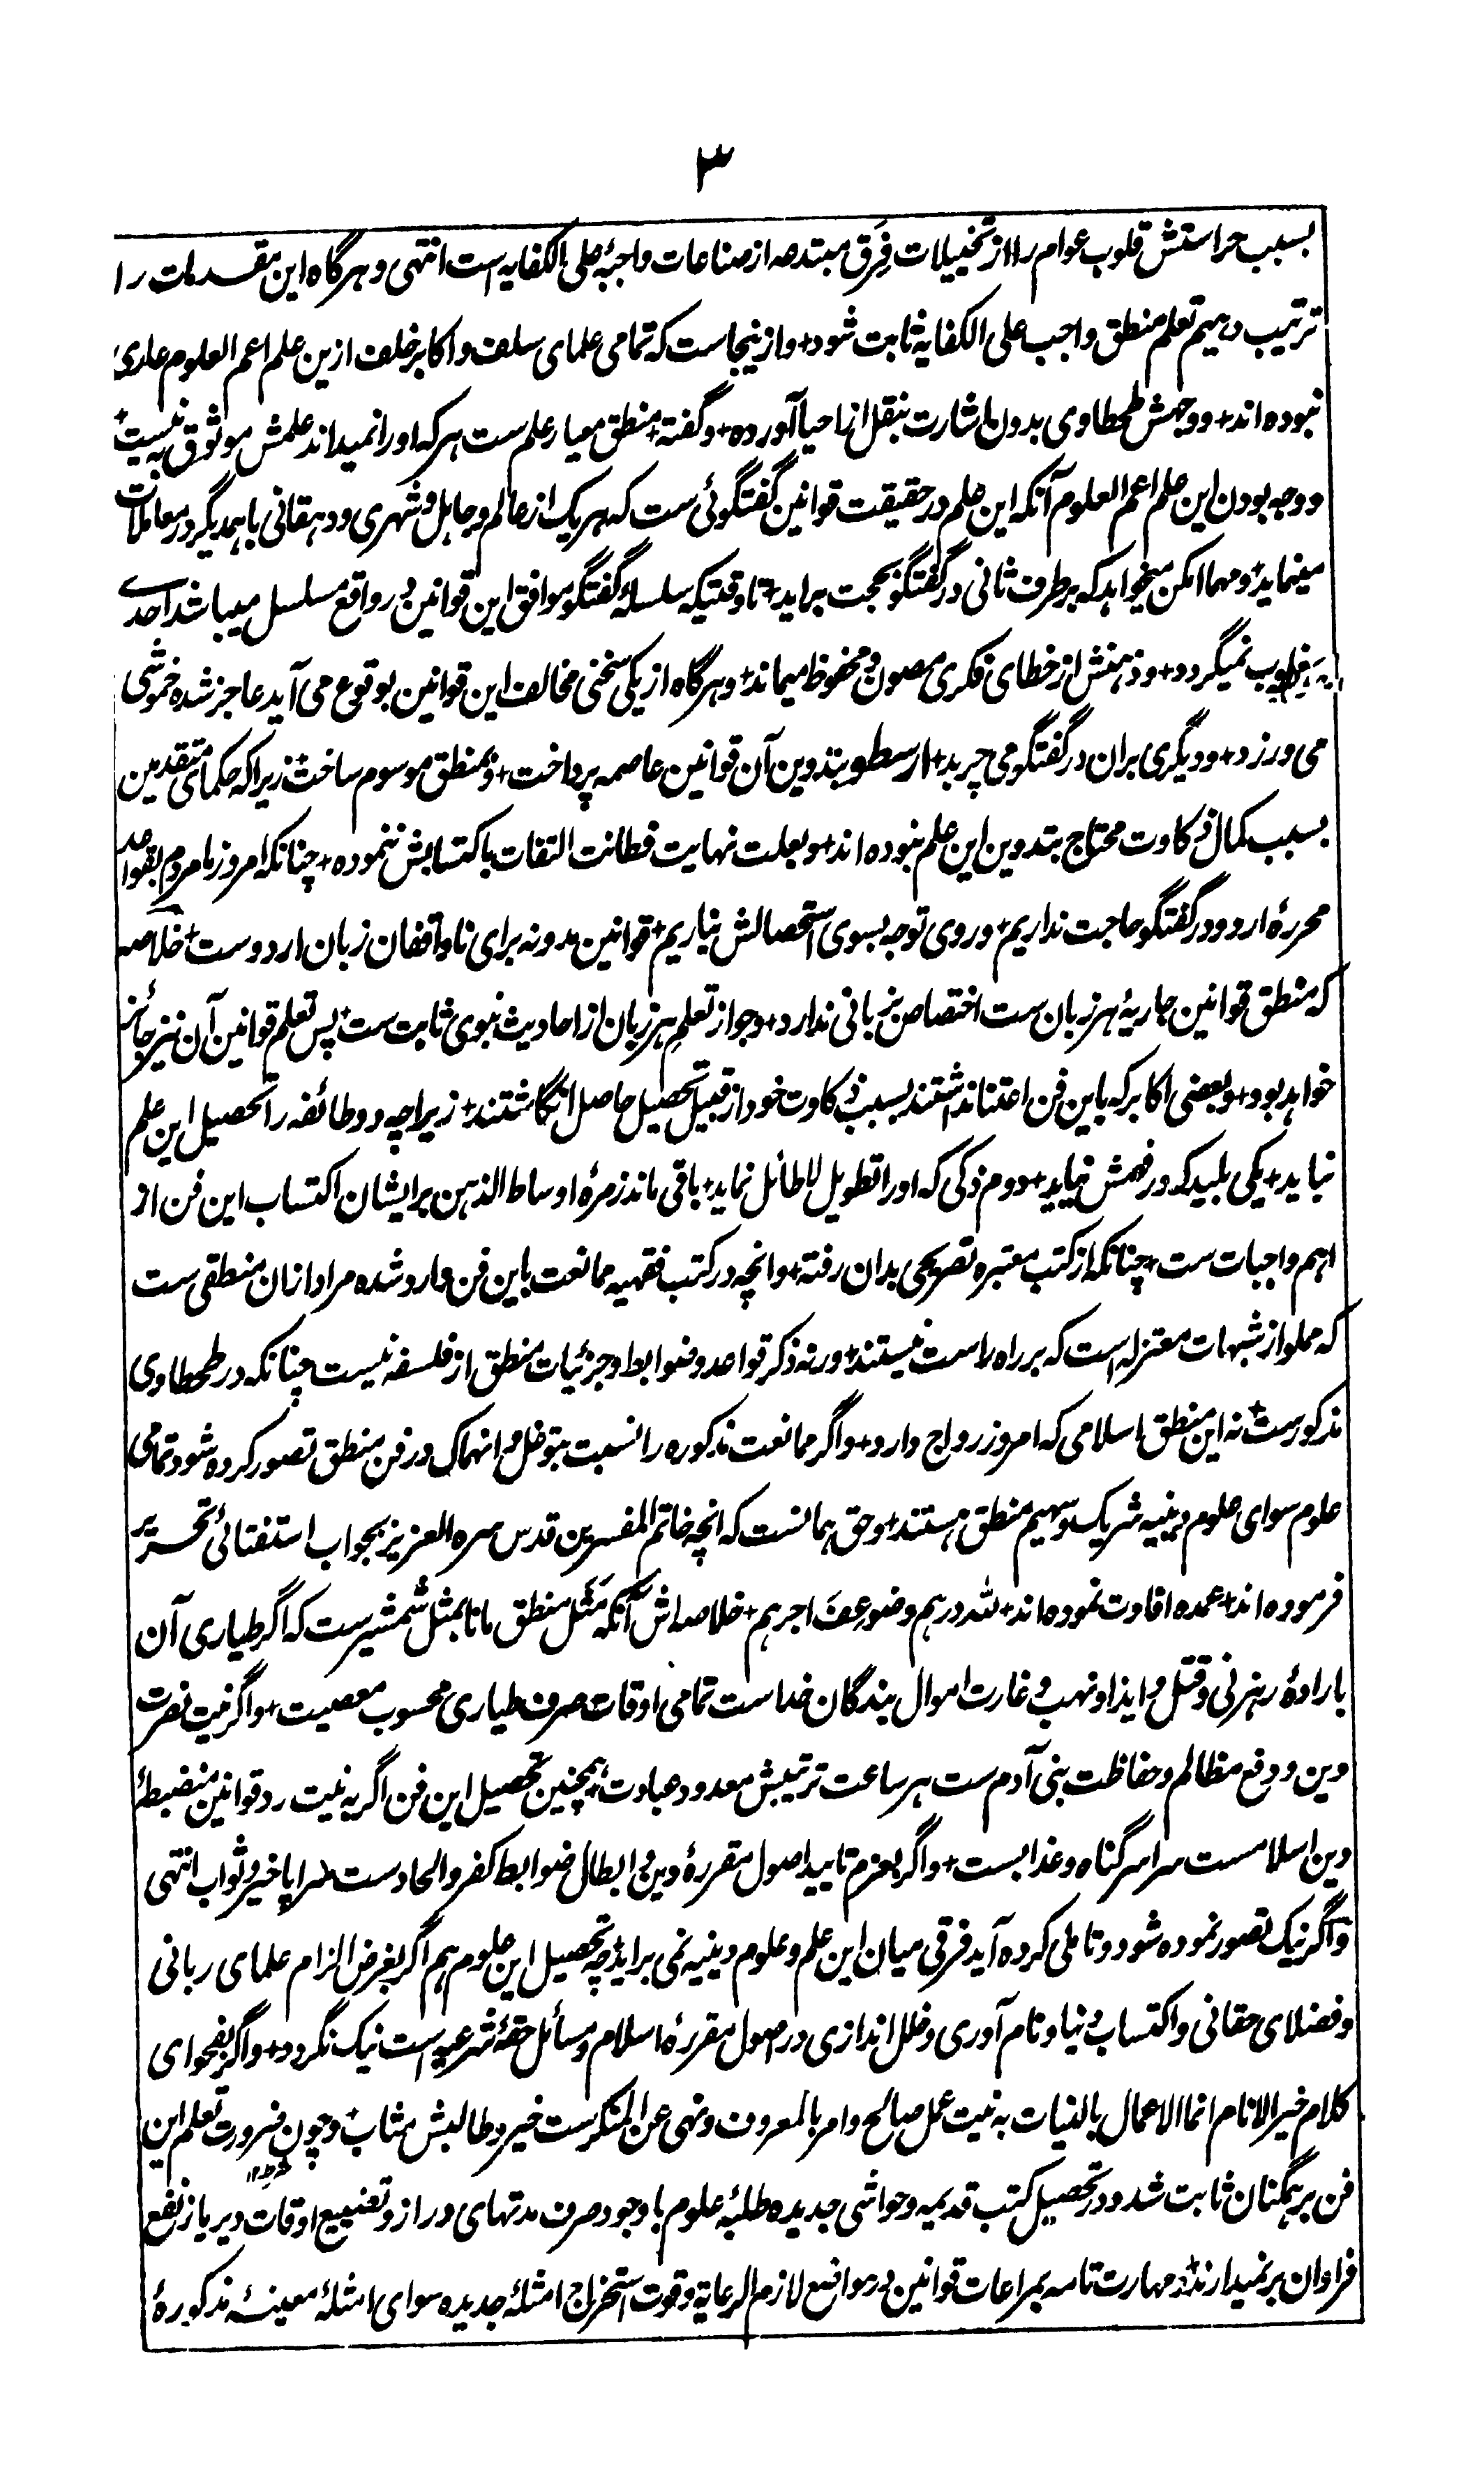 ۳
بسبب حراستش قلوب عوام را از تخییلات فِرَق مبتدعه از صناعات واجبۀ علی الکفایه است انتهی و هرگاه این مقدمات را
ترتیب دهیم تعلم منطق واجب علی الکفایه ثابت شود+ و ازینجاست که تمامی علمای سلف و اکابر خلف ازین علم اعم العلوم عاری
نبوده اند+ و وجهش طحطاوی بدون اشارت بنقل از احیا آورده+ و گفته+ منطق معیار علم ست هر که او را نمیداند علمش موثوق به نیست+
و وجه بودن این علم اعم العلوم آنکه این علم در حقیقت قوانین گفتگوئی ست که هر یک از عالم و جاهل و شهری و دهقانی باهمدیگر در معاملات
مینماید+ و مهما امکن میخواهد که بر طرف ثانی در گفتگو بحجت براید+ تا وقتیکه سلسلۀ گفتگو موافق این قوانین در واقع مسلسل میباشد احدے
مغلوب نمیگردد+ و ذهنش از خطای فکری مصون و محفوظ میماند+ و هرگاه از یکی سخنی مخالف این قوانین بوقوع می آید عاجز شده خموشی
می ورزد+ و دیگری بران در گفتگو می چربد+ ارسطو بتدوین آن قوانین عاصمه پرداخت+ و بمنطق موسوم ساخت+ زیرا که حکمای متقدمین
بسبب کمال ذکاوت محتاج بتدوین این علم نبوده اند+ و بعلت نهایت فطانت التفات باکتسابش ننموده+ چنانکه امروز ما مردم بقواعد
محررۀ اردو در گفتگو حاجت نداریم+ و روی توجه بسوی استحصالش نیاریم+ قوانین مدونه برای ناواقفان زبان اردوست+ خلاصه
که منطق قوانین جاریۀ هر زبان ست اختصاص بزبانی ندارد+ و جواز تعلم هر زبان از احادیث نبوی ثابت ست+ پس تعلم قوانین آن نیز جائز
خواهد بود+ و بعضی اکابر که باین فن اعتنا نداشتند بسبب ذکاوت خود از قبیل تحصیل حاصل انگاشتند+ زیرا چه دو طائفه را تحصیل این علم
نباید+ یکی بلید که در فهمش نیاید+ دوم ذکی که او را تطویل لاطائل نماید+ باقی ماند زمرۀ اوساط الذهن برایشان اکتساب این فن از
اهم واجبات ست+ چنانکه از کتب معتبره تصریحی بدان رفته+ و انچه در کتب فقهیه ممانعت باین فن وارد شده مراد ازان منطقی ست
که مملو از شبهات معتزله است که بر راه راست نیستند+ ورنه ذکر قواعد و ضوابط و جزئیات منطق از فلسفه نیست چنانکه در طحطاوی
مذکورست+ نه این منطق اسلامی که امروز رواج دارد+ و اگر ممانعت مذکوره را نسبت بتوغل و انهماک در فن منطق تصور کرده شود تمامی
علوم سوای علوم دینیه شریک و سهیم منطق هستند+ و حق همانست که انچه خاتم المفسرین قدس سره العزیز بجواب استفتائی تحریر
فرموده اند+ عمده افادت نموده اند+ لله درهم و ضوعِفَ اجرهم+ خلاصه اش آنکه مَثَل منطق مانا بمثل شمشیرست که اگر طیاری آن
بارادۀ رهزنی و قتل و ایذا و نهب و غارت اموال بندگان خداست تمامی اوقات صرف طیاری محسوب معصیت+ و اگر نیت نصرت
دین و دفع مظالم و حفاظت بنی آدم ست هر ساعت ترتیبش معدود عبادت+ همچنین تحصیل این فن اگر به نیت رد قوانین منضبطۀ
دین اسلامست سراسر گناه و عذابست+ و اگر بعزم تایید اصول مقررۀ دین و ابطال ضوابط کفر و الحادست سراپا خیر و ثواب انتهی
و اگر نیک تصور نموده شود و تاملی کرده آید فرقی میان این علم و علوم دینیه نمی براید+ چه تحصیل این علوم هم اگر بغرض الزام علمای ربانی
و فضلای حقانی و اکتساب دنیا و نام آوری و خلل اندازی در اصول مقررۀ اسلام و مسائل حقۀ شرعیه است نیک نگردد+ و اگر بفحوای
کلام خیر الانام انما الاعمال بالنیات به نیت عمل صالح و امر بالمعروف و نهی عن المنکرست خیر و طالبش مثاب+ و چون ضرورت تعلم این
فن بر همگنان ثابت شد و در تحصیل کتب قدیمه و حواشی جدیده طلبۀ علوم باوجود صرف مدتهای دراز و تضییع اوقات دیر باز نفع
فراوان بر نمیدارند+ و مهارت تامه بمراعات قوانین در مواضع لازم الرعایة و قوت استخراج امثلۀ جدیده سوای امثلۀ معینۀ مذکورۀ